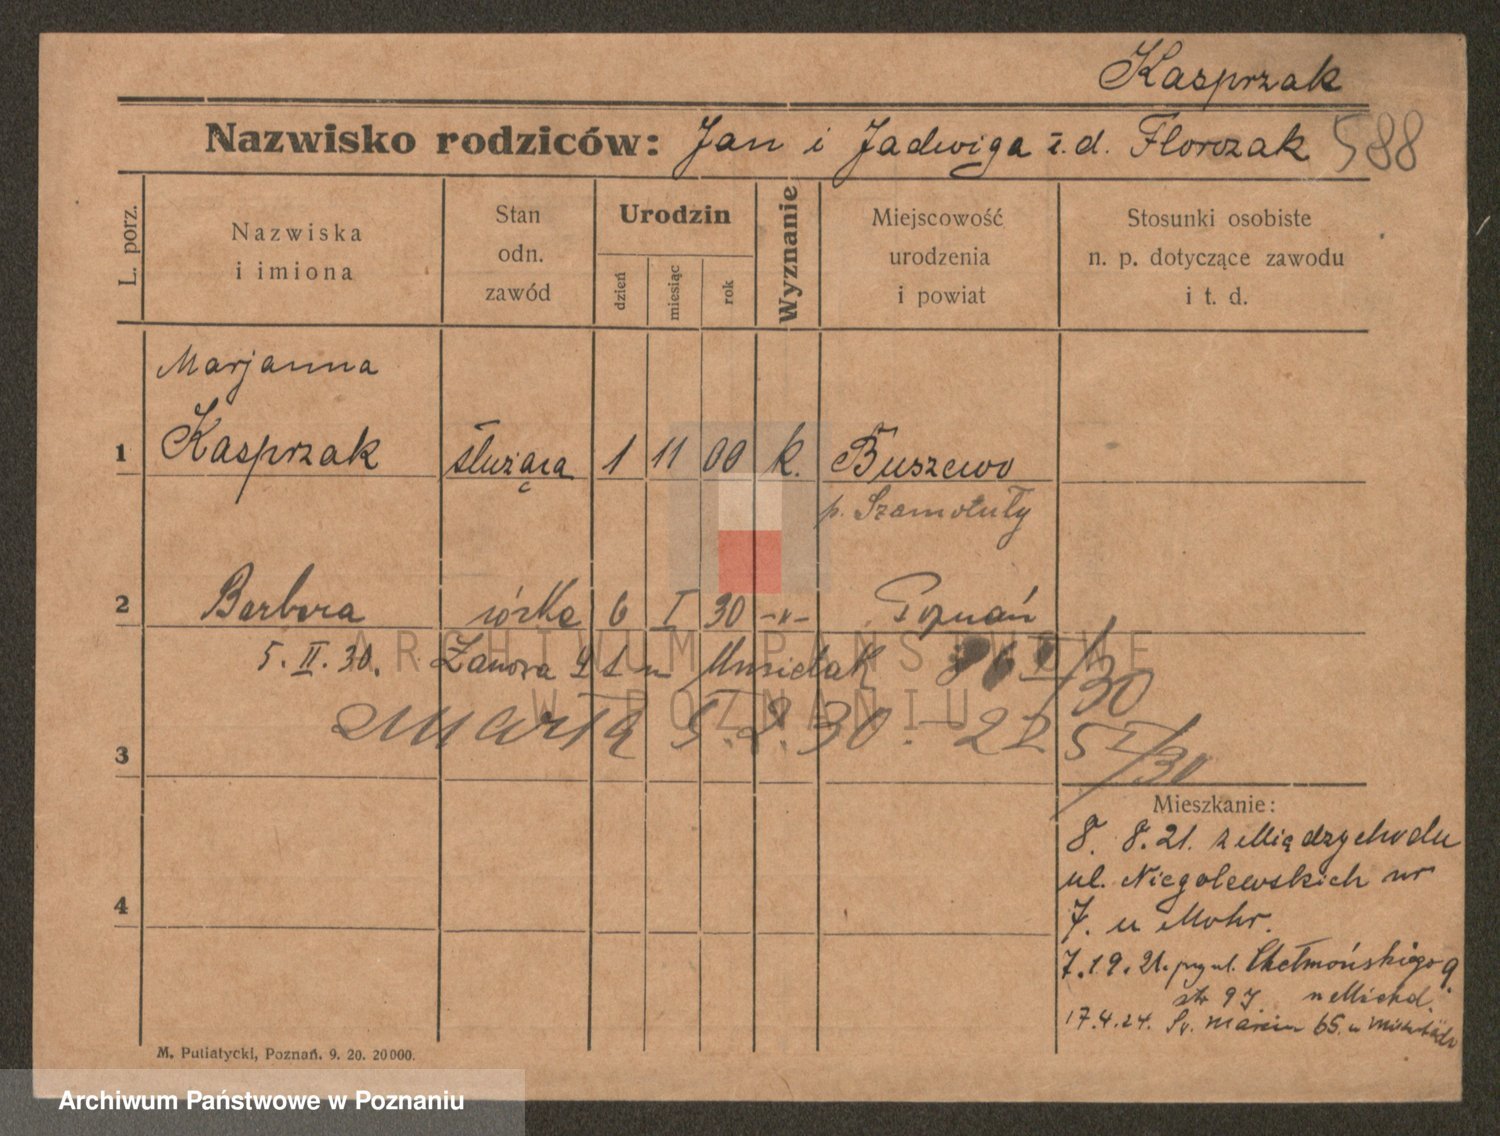 Kasprzak
Nazwisko rodziców: Jan i Jadwiga z.d. Florczak 588
L. porz.
Nazwiska i imiona
Stan odn. zawód
Urodzin
dzień
miesiąc
rok
Wyznanie
Miejscowość urodzenia i powiat
Stosunki osobiste n. p. dotyczące zawodu i t. d.
Marjanna
1 Kasprzak służąca 1 11 00 k. Buszewo
p. Szamotuły
2 Barbara córka 6 I 30 -"- Poznań
5. II. 30. u Musielak
ARCHIWUM PAŃSTWOWE
W POZNANIU
zmarła 5.2.30.
3
Mieszkanie:
8. 8. 21. z Międzychodu
ul. Niegolewskich nr
4
7. u Mohr.
Chełmońskiego 9
17.4.24. Św. Marcin 65. u
M. Putiatycki, Poznań. 9. 20. 20000.
Archiwum Państwowe w Poznaniu